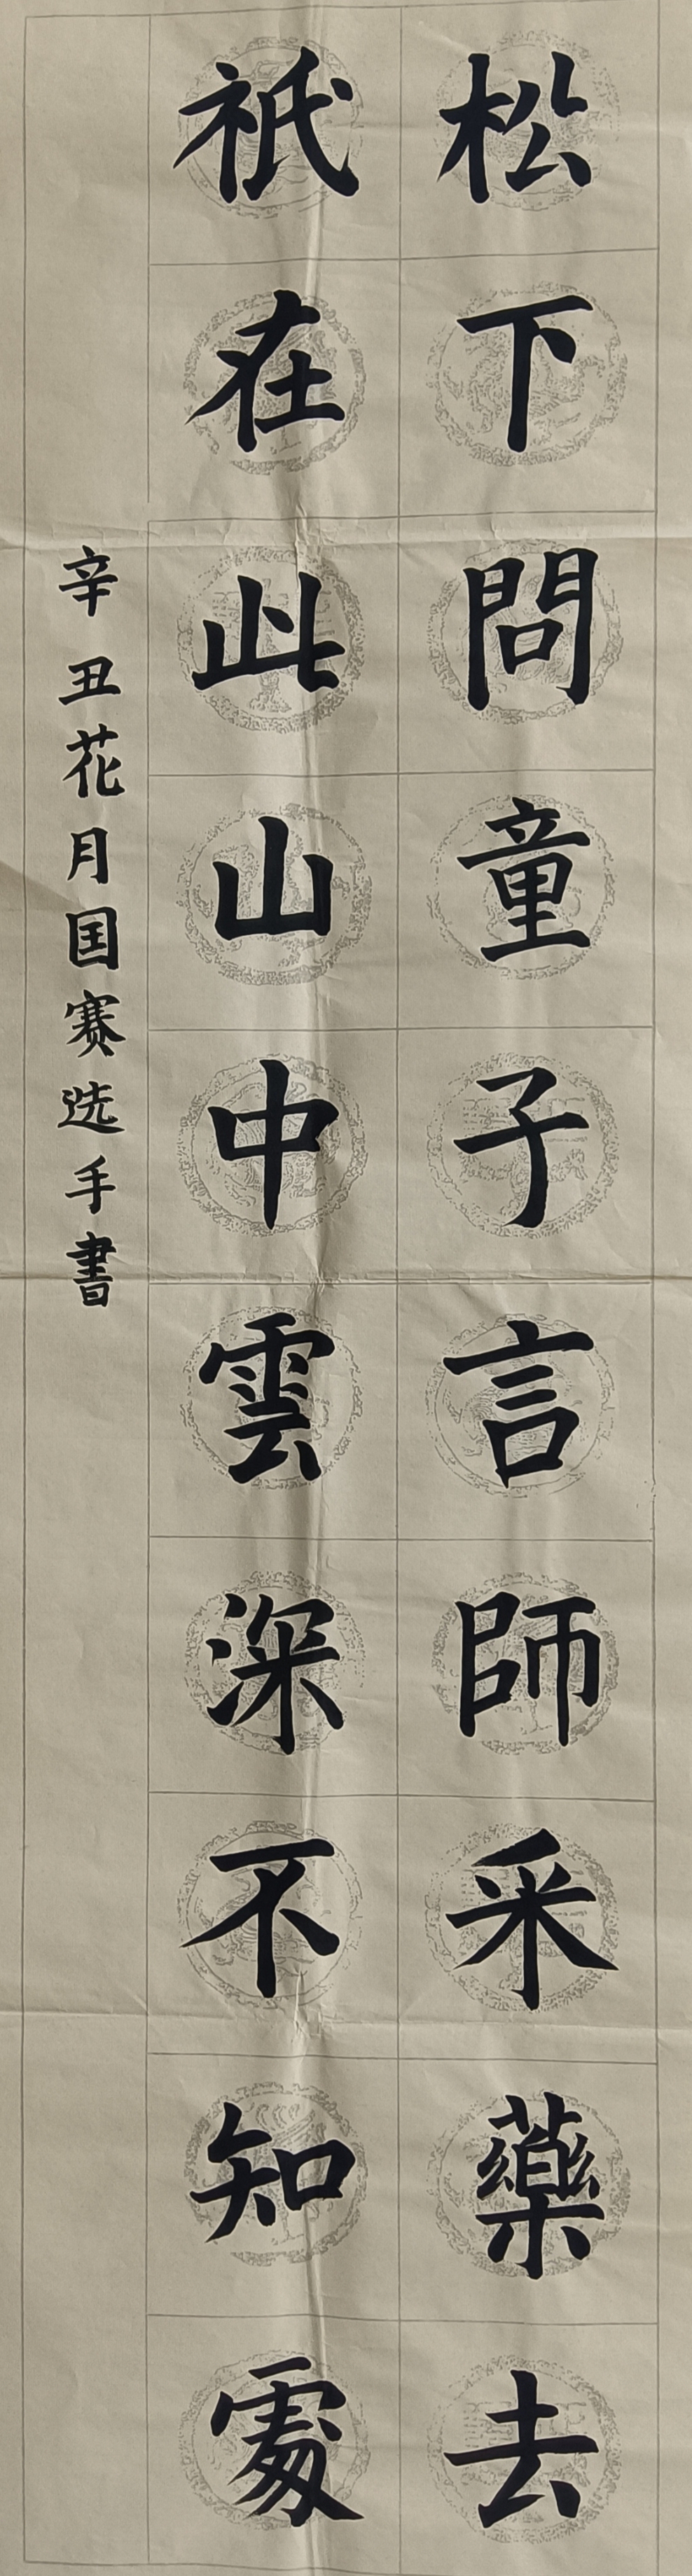 松下問童子言師采藥去
祇在此山中雲深不知處
辛丑花月国赛选手書